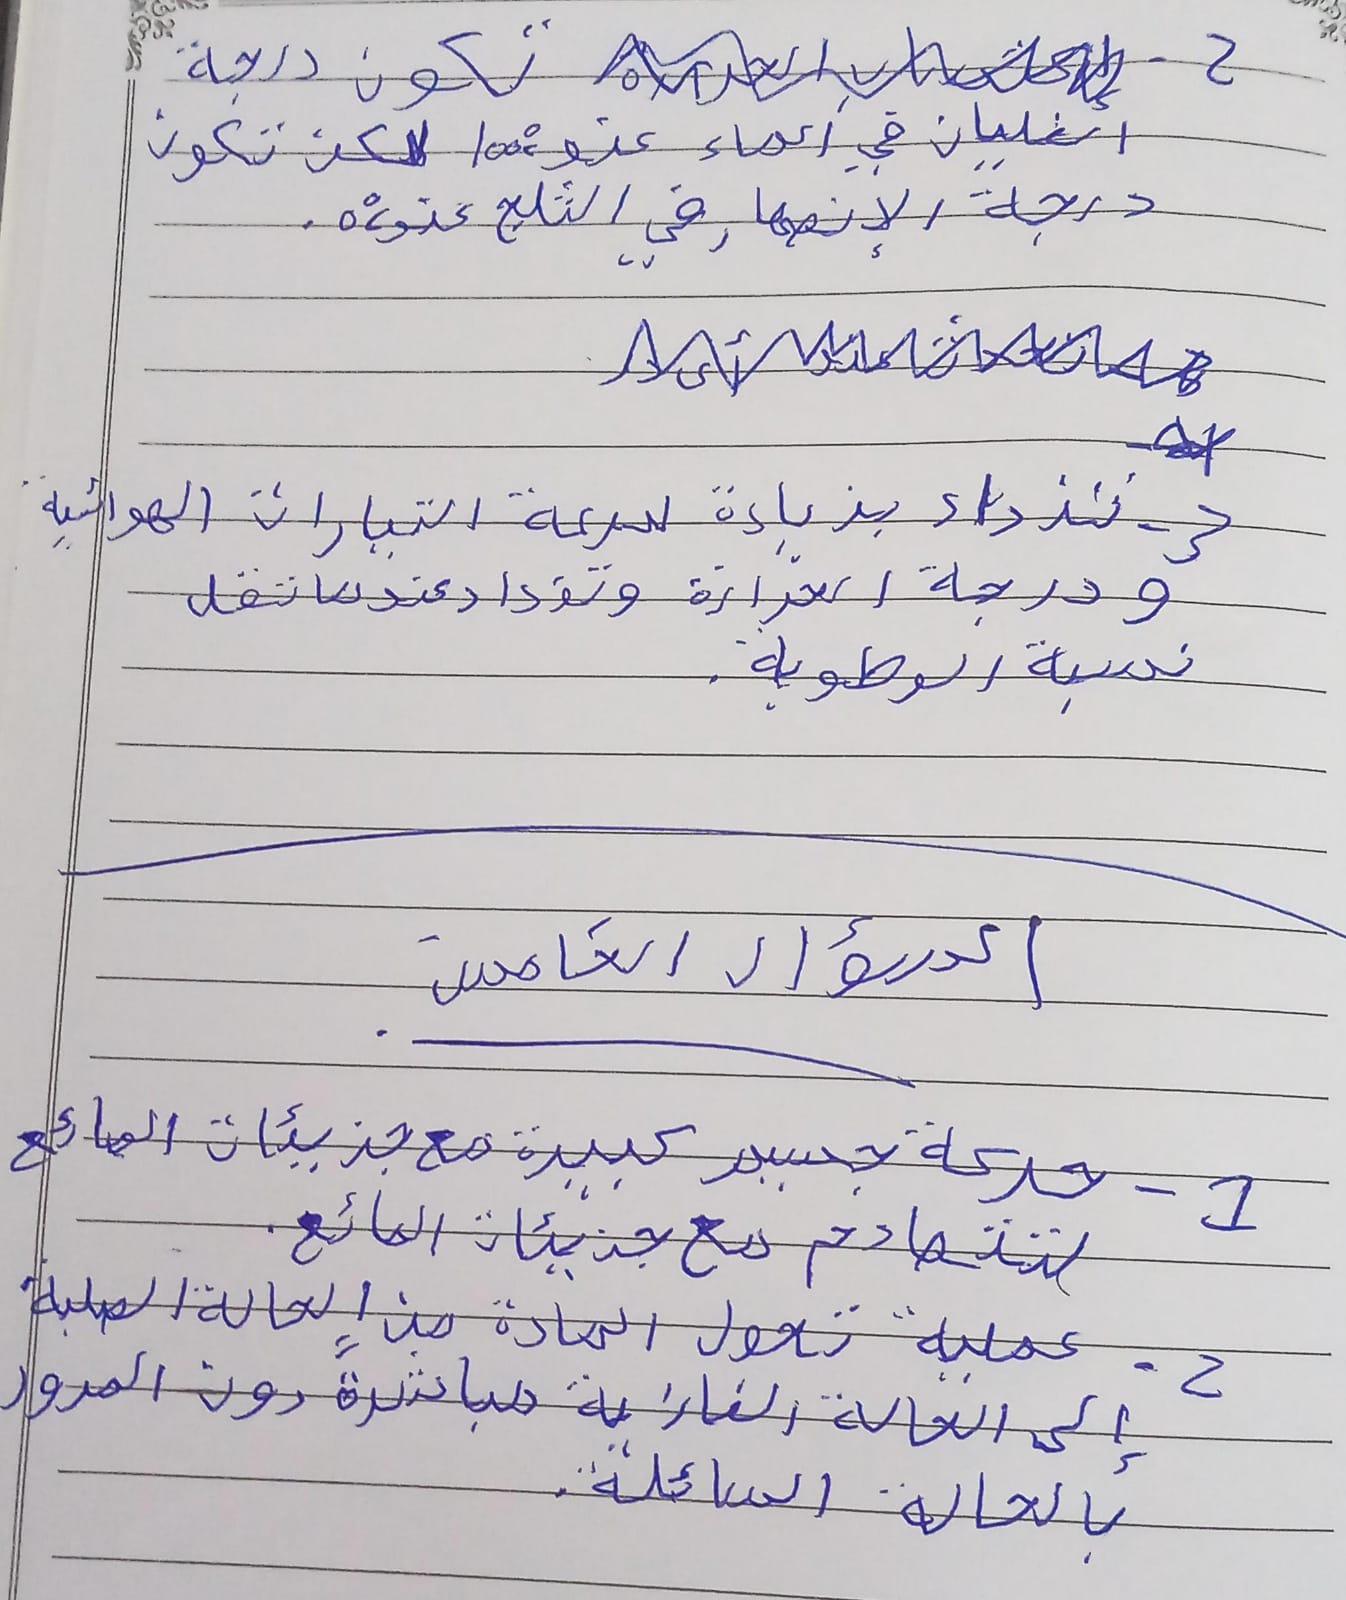 2 - تكون درجة
الغليان في الماء عند 100° لكن تكون
درجة الإنصهار في الثلج عند 0°.
3 - تزداد بزيادة سرعة التيارات الهوائية
ودرجة الحرارة وتزداد عندما تقل
نسبة الرطوبة.
السؤال الخامس
1 - حركة جسيم كبيرة مع جزيئات المائع
لتتصادم مع جزيئات المائع.
2 - عملية تحول المادة من الحالة الصلبة
إلى الحالة الغازية مباشرة دون المرور
بالحالة السائلة.